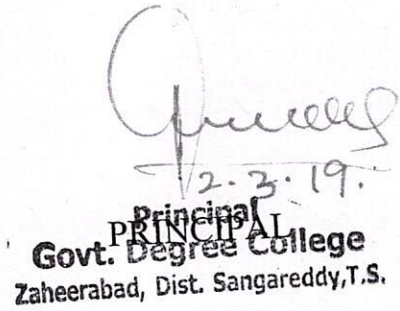 2.3.19.
Principal
PRINCIPAL
Govt. Degree College
Zaheerabad, Dist. Sangareddy,T.S.